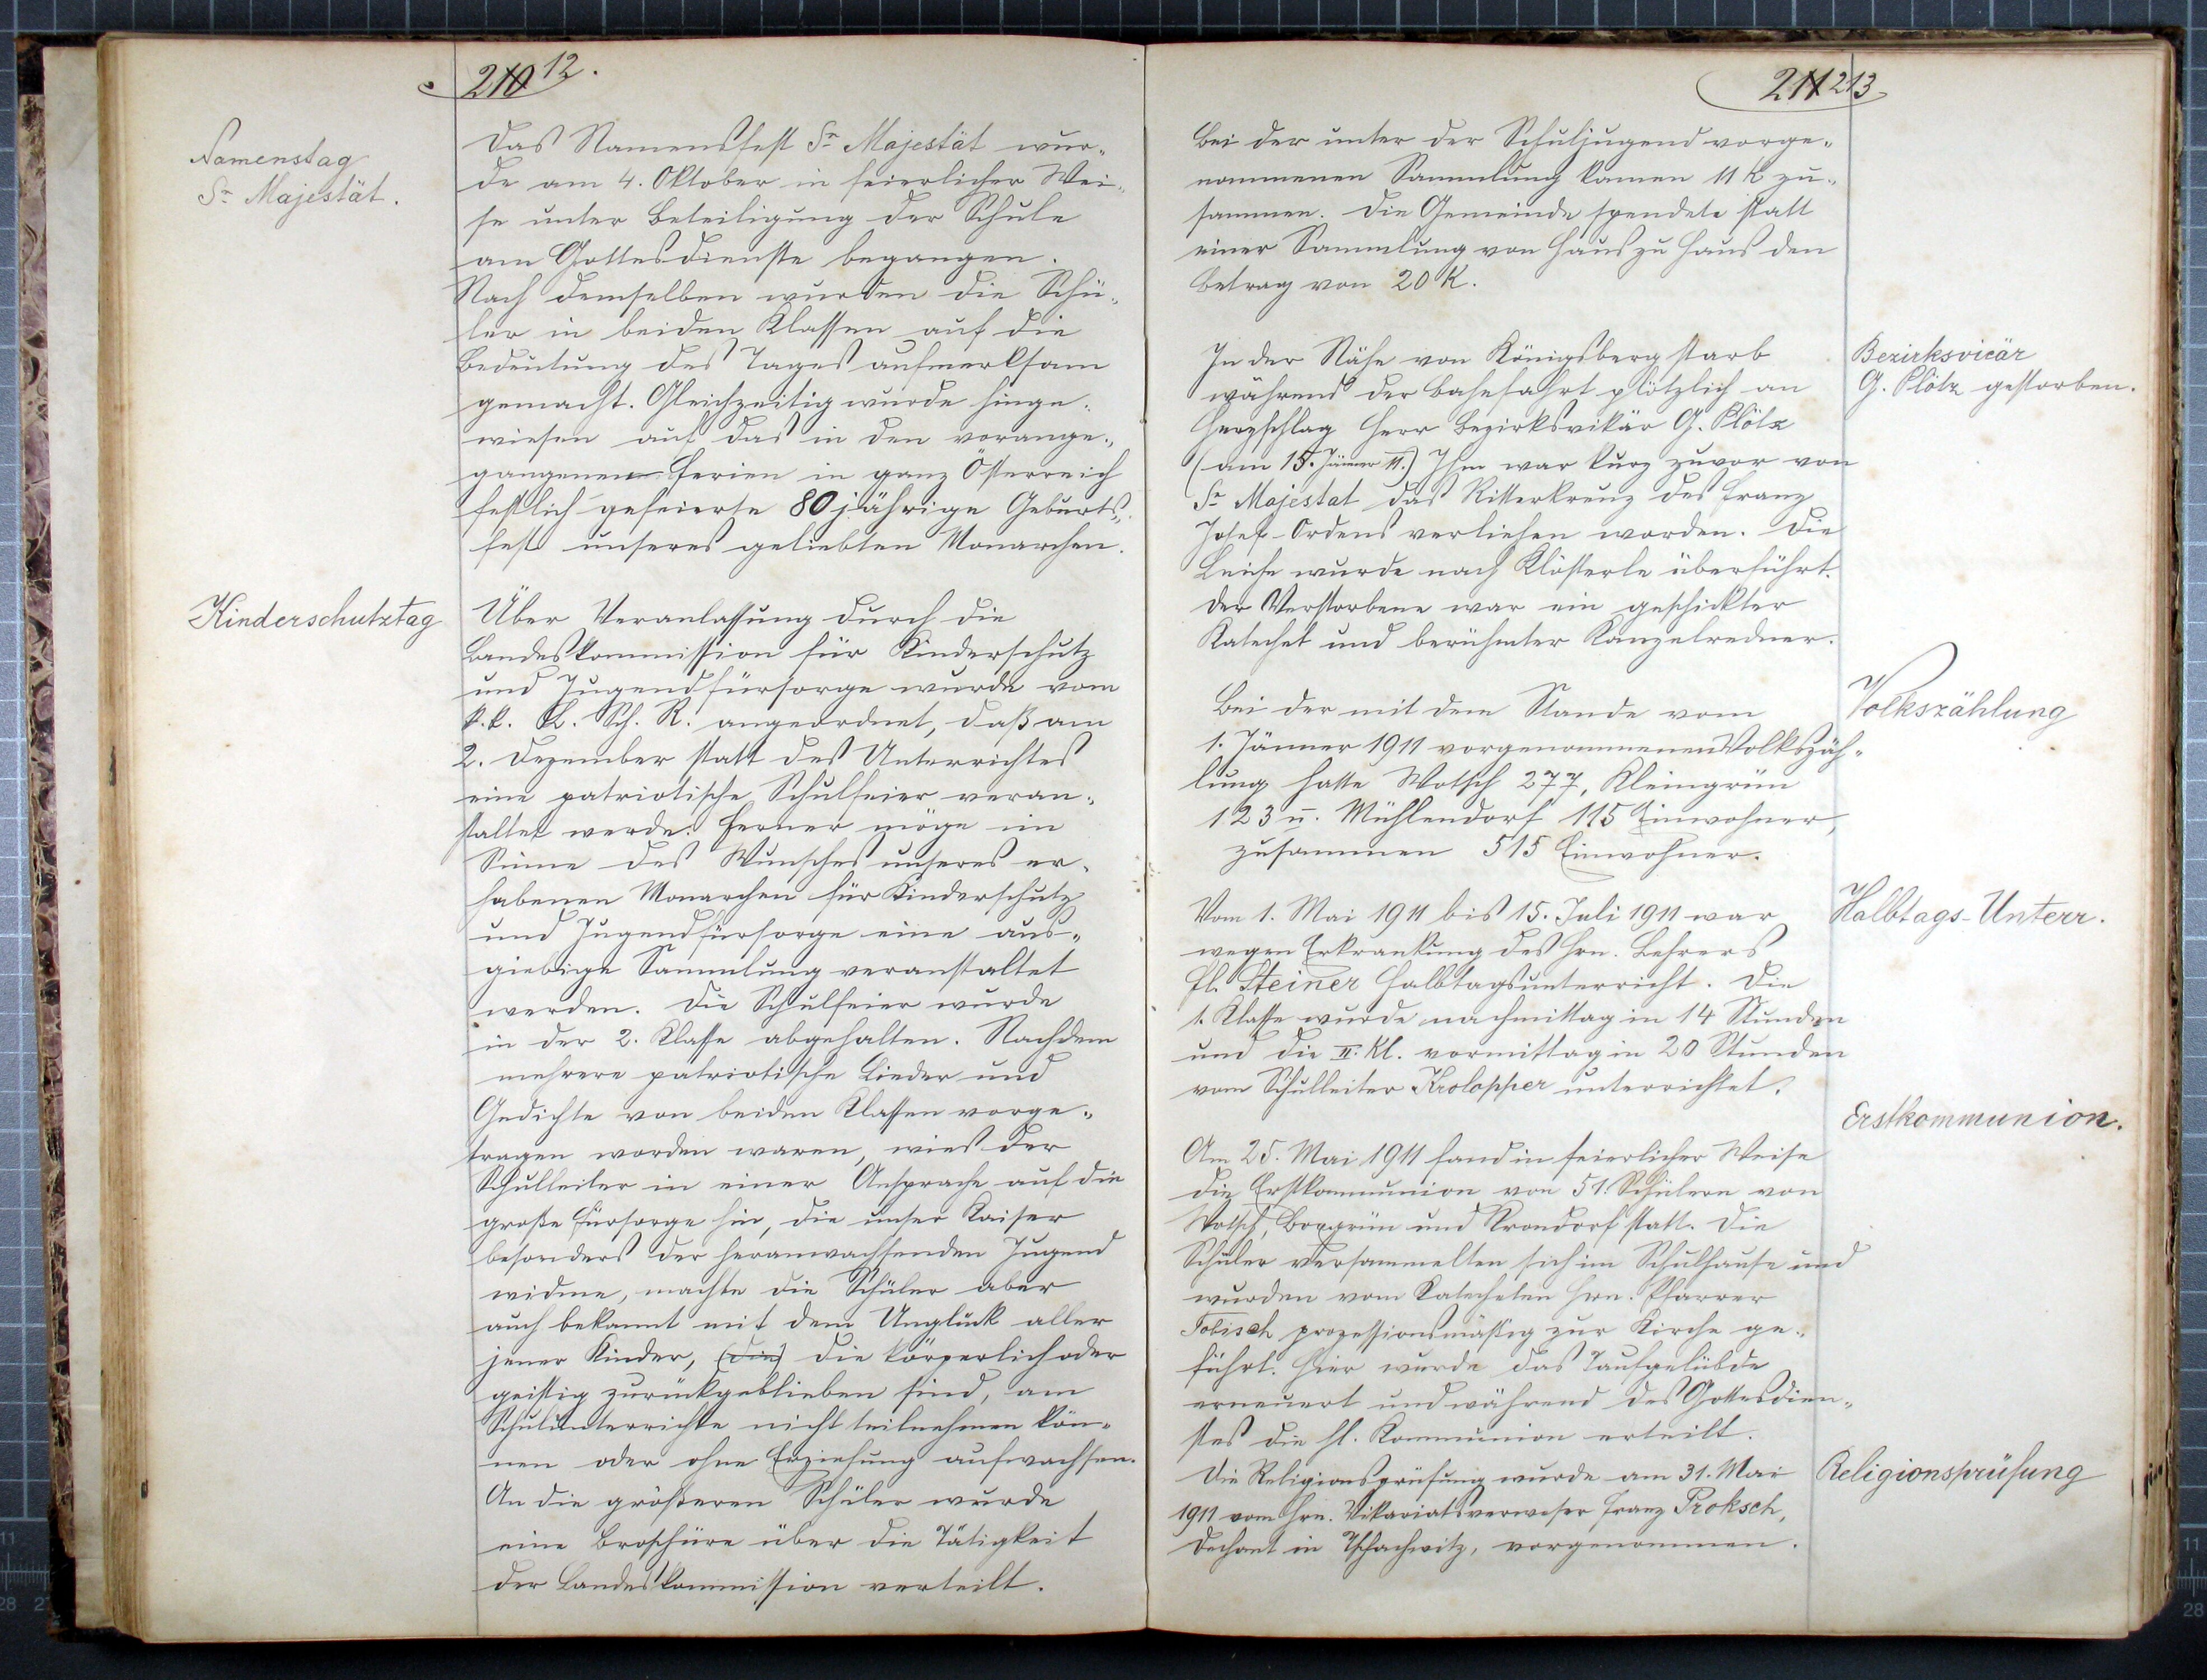 210 12.
Namenstag
Sr Majestät.
Das Namensfest Sr Majestät wur-
de am 4. Oktober in feierlicher Wei-
se unter Beteiligung der Schule
am Gottesdienste begangen.
Nach demselben wurden die Schü-
ler in beiden Klassen auf die
Bedeutung des Tages aufmerksam
gemacht. Gleichzeitig wurde hinge-
wiesen auf das in den vorange-
gangenen Ferien in ganz Österreich
festlich gefeierte 80 jährige Geburts-
fest unseres geliebten Monarchen.
Kinderschutztag
Über Veranlassung durch die
Landeskommission für Kinderschutz
und Jugendfürsorge wurde vom
k. k. L. Sch. R. angeordnet, daß am
2. Dezember statt des Unterrichtes
eine patriotische Schulfeier veran-
staltet werde. Ferner möge im
Sinne des Wunsches unseres er-
habenen Monarchen für Kinderschutz
und Jugendfürsorge eine aus-
giebige Sammlung veranstaltet
werden. Die Schulfeier wurde
in der 2. Klasse abgehalten. Nachdem
mehrere patriotische Lieder und
Gedichte von beiden Klassen vorge-
tragen worden waren, wies der
Schulleiter in einer Ansprache auf die
große Fürsorge hin, die unser Kaiser
besonders der heranwachsenden Jugend
widme, machte die Schüler aber
auch bekannt mit dem Unglück aller
jener Kinder, (die) die körperlich oder
geistig zurückgeblieben sind, am
Schulunterrichte nicht teilnehmen kön-
nen oder ohne Erziehung aufwachsen.
An die größeren Schüler wurde
eine Broschüre über die Tätigkeit
der Landeskommission verteilt.
211 213
Bei der unter der Schuljugend vorge-
nommenen Sammlung kamen 11 K zu-
sammen. Die Gemeinde spendete statt
einer Sammlung von Haus zu Haus den
Betrag von 20 K.
Bezirksvicär
G. Plötz gestorben.
In der Nähe von Königsberg starb
während der Bahnfahrt plötzlich an
Herzschlag Herr Bezirksvikär G. Plötz
(am 15. Jänner 11.) Ihm war kurz zuvor von
Sr Majestat das Ritterkreuz des Franz
Josef-Ordens verliehen worden. Die
Leiche wurde nach Klösterle überführt.
Der Verstorbene war ein geschickter
Katechet und berühmter Kanzelredner.
Volkszählung
Bei der mit dem Stande vom
1. Jänner 1911 vorgenommenen Volkszäh-
lung hatte Wotsch 277, Kleingrün
123 u. Mühlendorf 115 Einwohner,
zusammen 515 Einwohner.
Halbtags-Unterr.
Vom 1. Mai 1911 bis 15. Juli 1911 war
wegen Erkrankung des Hrn. Lehrers
Fl. Steiner Halbtagsunterricht. Die
1. Klasse wurde nachmittag in 14 Stunden
und die II. Kl. vormittag in 20 Stunden
vom Schulleiter Krolopper unterrichtet.
Erstkommunion.
Am 25. Mai 1911 fand in feierlicher Weise
die Erstkommunion von 51. Schülern von
Wotsch, Boxgrün und Krondorf statt. Die
Schüler versammelten sich im Schulhause und
wurden vom Katecheten Hrn. Pfarrer
Tobisch prozessionsmäßig zur Kirche ge-
führt. Hier wurde das Taufgelübde
erneuert und während des Gottesdien-
stes die hl. Kommunion erteilt.
Religionsprüfung
Die Religionsprüfung wurde am 31. Mai
1911 vom Hrn. Vikariatsverweser Franz Proksch,
Dechant in Tschachwitz, vorgenommen.
11
28 27
11
28